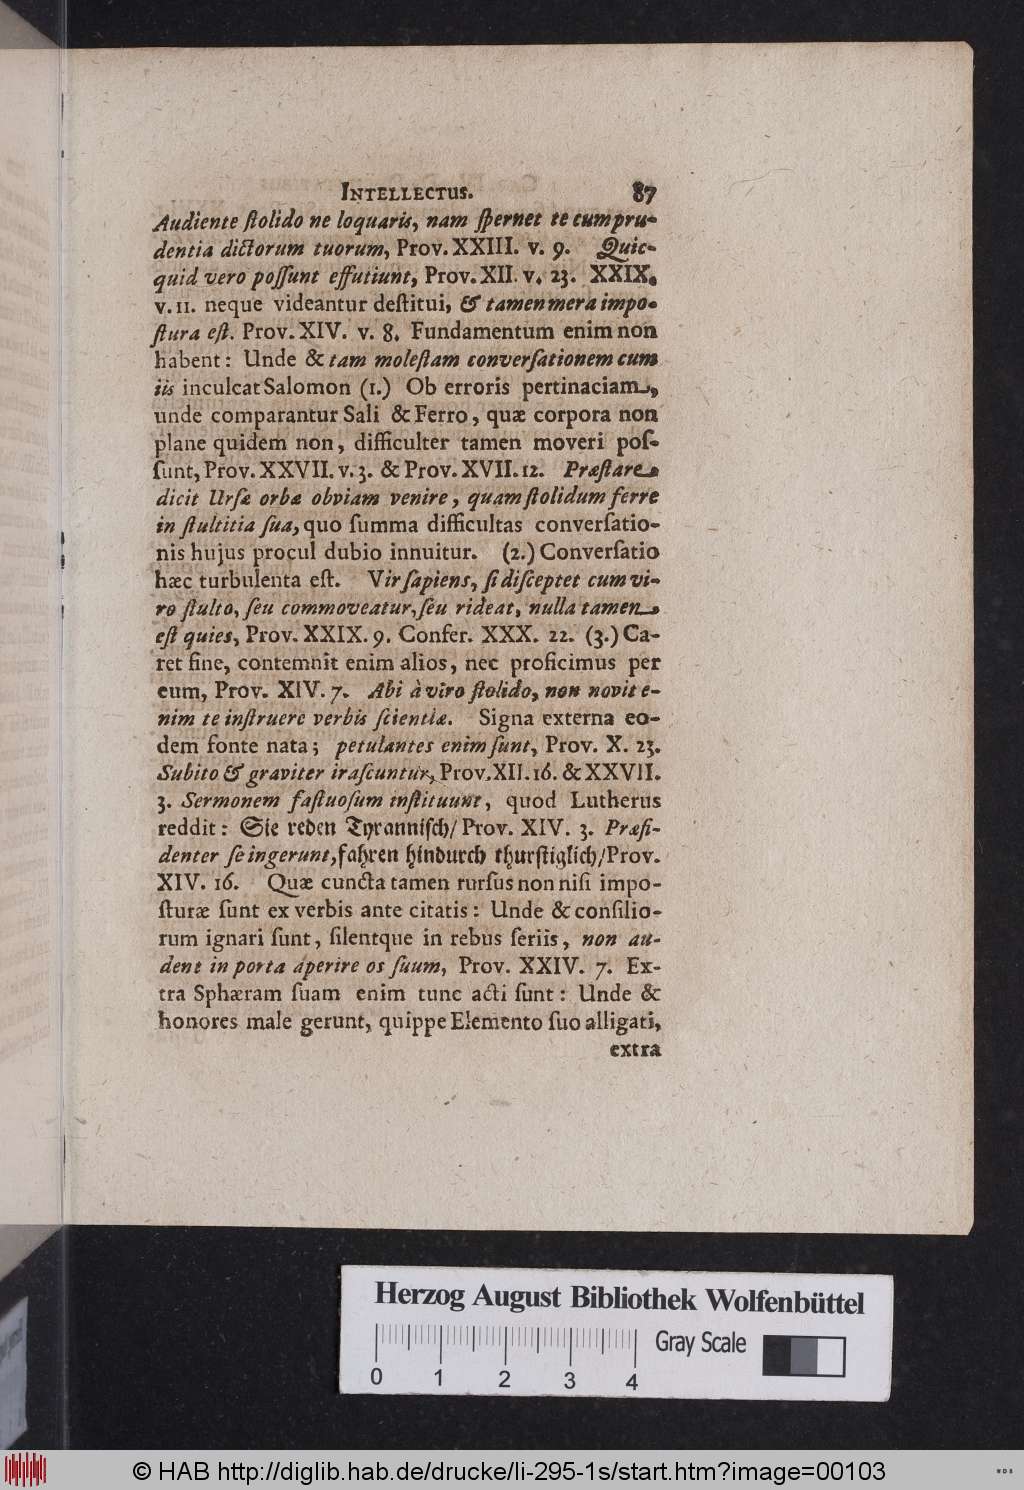 INTELLECTUS. 87
Audiente ſtolido ne loquaris, nam ſpernet te cum pru-
dentia dictorum tuorum, Prov. XXIII. v. 9. Quic-
quid vero poſſunt effutiunt, Prov. XII. v. 23. XXIX.
v. 11. neque videantur deſtitui, & tamen mera impo-
ſtura eſt. Prov. XIV. v. 8. Fundamentum enim non
habent: Unde & tam moleſtam converſationem cum
iis inculcat Salomon (1.) Ob erroris pertinaciam,
unde comparantur Sali & Ferro, quæ corpora non
plane quidem non, difficulter tamen moveri poſ-
ſunt, Prov. XXVII. v. 3. & Prov. XVII. 12. Præſtare
dicit Urſæ orbæ obviam venire, quam ſtolidum ferre
in ſtultitia ſua, quo ſumma difficultas converſatio-
nis hujus procul dubio innuitur. (2.) Converſatio
hæc turbulenta eſt. Vir ſapiens, ſi diſceptet cum vi-
ro ſtulto, ſeu commoveatur, ſeu rideat, nulla tamen
eſt quies, Prov. XXIX. 9. Confer. XXX. 22. (3.) Ca-
ret fine, contemnit enim alios, nec proficimus per
eum, Prov. XIV. 7. Abi à viro ſtolido, non novit e-
nim te inſtruere verbis ſcientiæ. Signa externa eo-
dem fonte nata; petulantes enim ſunt, Prov. X. 23.
Subito & graviter iraſcuntur, Prov. XII. 16. & XXVII.
3. Sermonem faſtuoſum inſtituunt, quod Lutherus
reddit: Sie reden Tyranniſch/ Prov. XIV. 3. Præfi-
denter ſe ingerunt, fahren hindurch thurſtiglich/ Prov.
XIV. 16. Quæ cuncta tamen rurſus non niſi impo-
ſturæ ſunt ex verbis ante citatis: Unde & conſilio-
rum ignari ſunt, ſilentque in rebus ſeriis, non au-
dent in porta aperire os ſuum, Prov. XXIV. 7. Ex-
tra Sphæram ſuam enim tunc acti ſunt: Unde &
honores male gerunt, quippe Elemento ſuo alligati,
extra
Herzog August Bibliothek Wolfenbüttel
Gray Scale
0 1 2 3 4
© HAB http://diglib.hab.de/drucke/li-295-1s/start.htm?image=00103